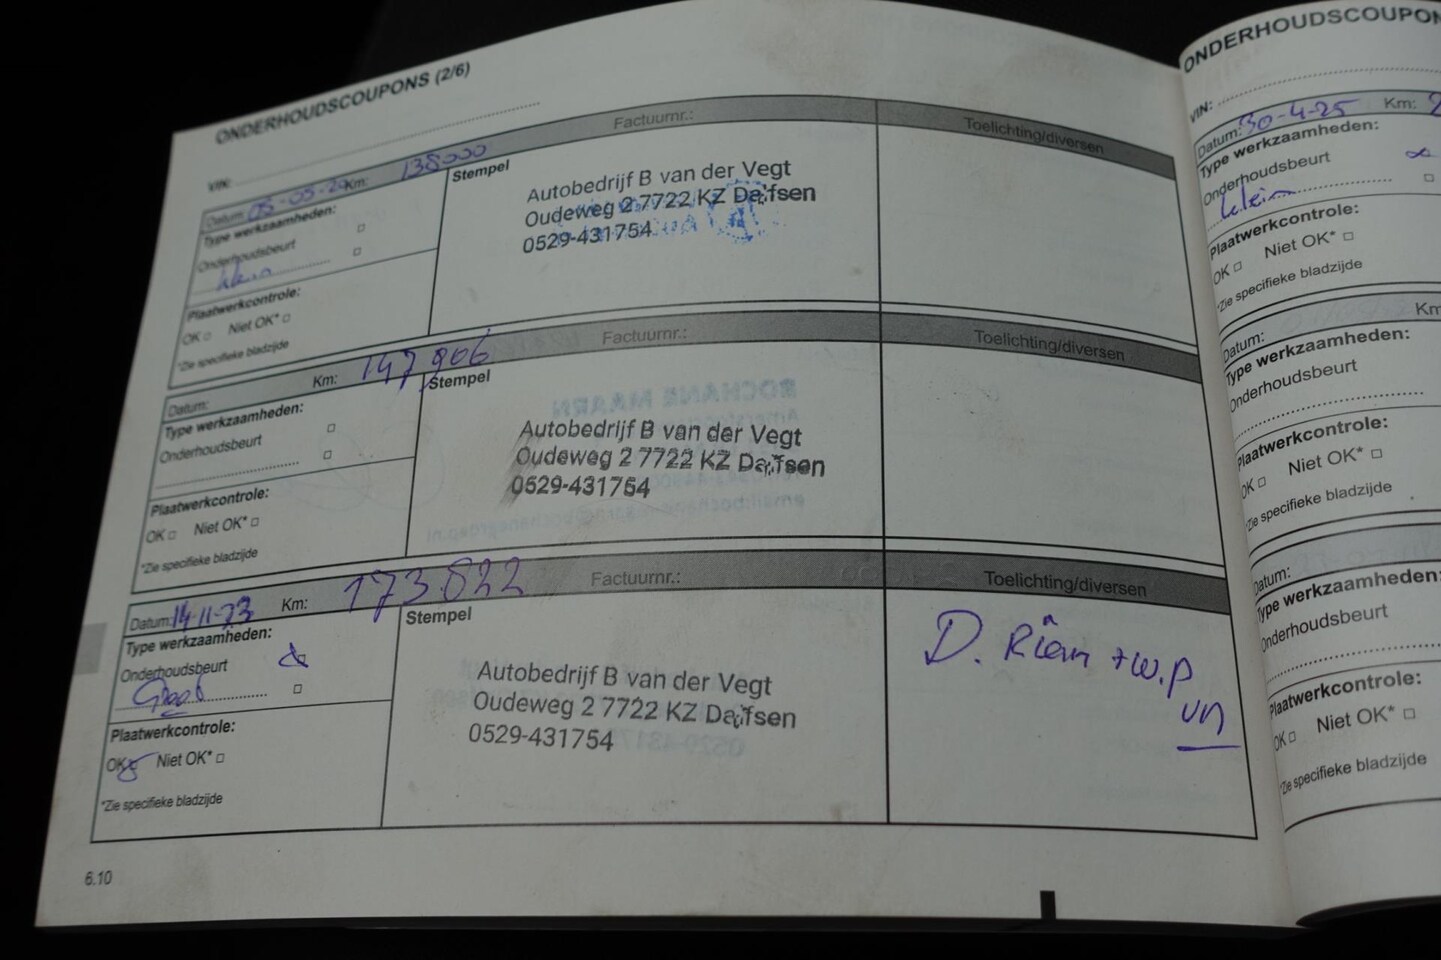 ONDERHOUDSCOUPONS (2/6)
VIN:
Datum: 05-05-20 Km: 138000 Factuurnr.: Toelichting/diversen
Type werkzaamheden:
Onderhoudsbeurt
klein
Plaatwerkcontrole:
OK Niet OK*
*Zie specifieke bladzijde
Stempel
Autobedrijf B van der Vegt
Oudeweg 2 7722 KZ Dalfsen
0529-431754
Datum: Km: 147,906 Factuurnr.: Toelichting/diversen
Type werkzaamheden:
Onderhoudsbeurt
Plaatwerkcontrole:
OK Niet OK*
*Zie specifieke bladzijde
Stempel
Autobedrijf B van der Vegt
Oudeweg 2 7722 KZ Dalfsen
0529-431754
Datum: 14-11-23 Km: 173.822 Factuurnr.: Toelichting/diversen
Type werkzaamheden:
Onderhoudsbeurt
Groot
Plaatwerkcontrole:
OK Niet OK*
*Zie specifieke bladzijde
Stempel
Autobedrijf B van der Vegt
Oudeweg 2 7722 KZ Dalfsen
0529-431754
D. Riem + w.p
vn
6.10
ONDERHOUDSCOUPON
VIN:
Datum: 30-4-25 Km: 2
Type werkzaamheden:
Onderhoudsbeurt
klein
Plaatwerkcontrole:
OK Niet OK*
*Zie specifieke bladzijde
Datum: Km
Type werkzaamheden:
Onderhoudsbeurt
Plaatwerkcontrole:
OK Niet OK*
*Zie specifieke bladzijde
Datum:
Type werkzaamheden:
Onderhoudsbeurt
Plaatwerkcontrole:
OK Niet OK*
*Zie specifieke bladzijde